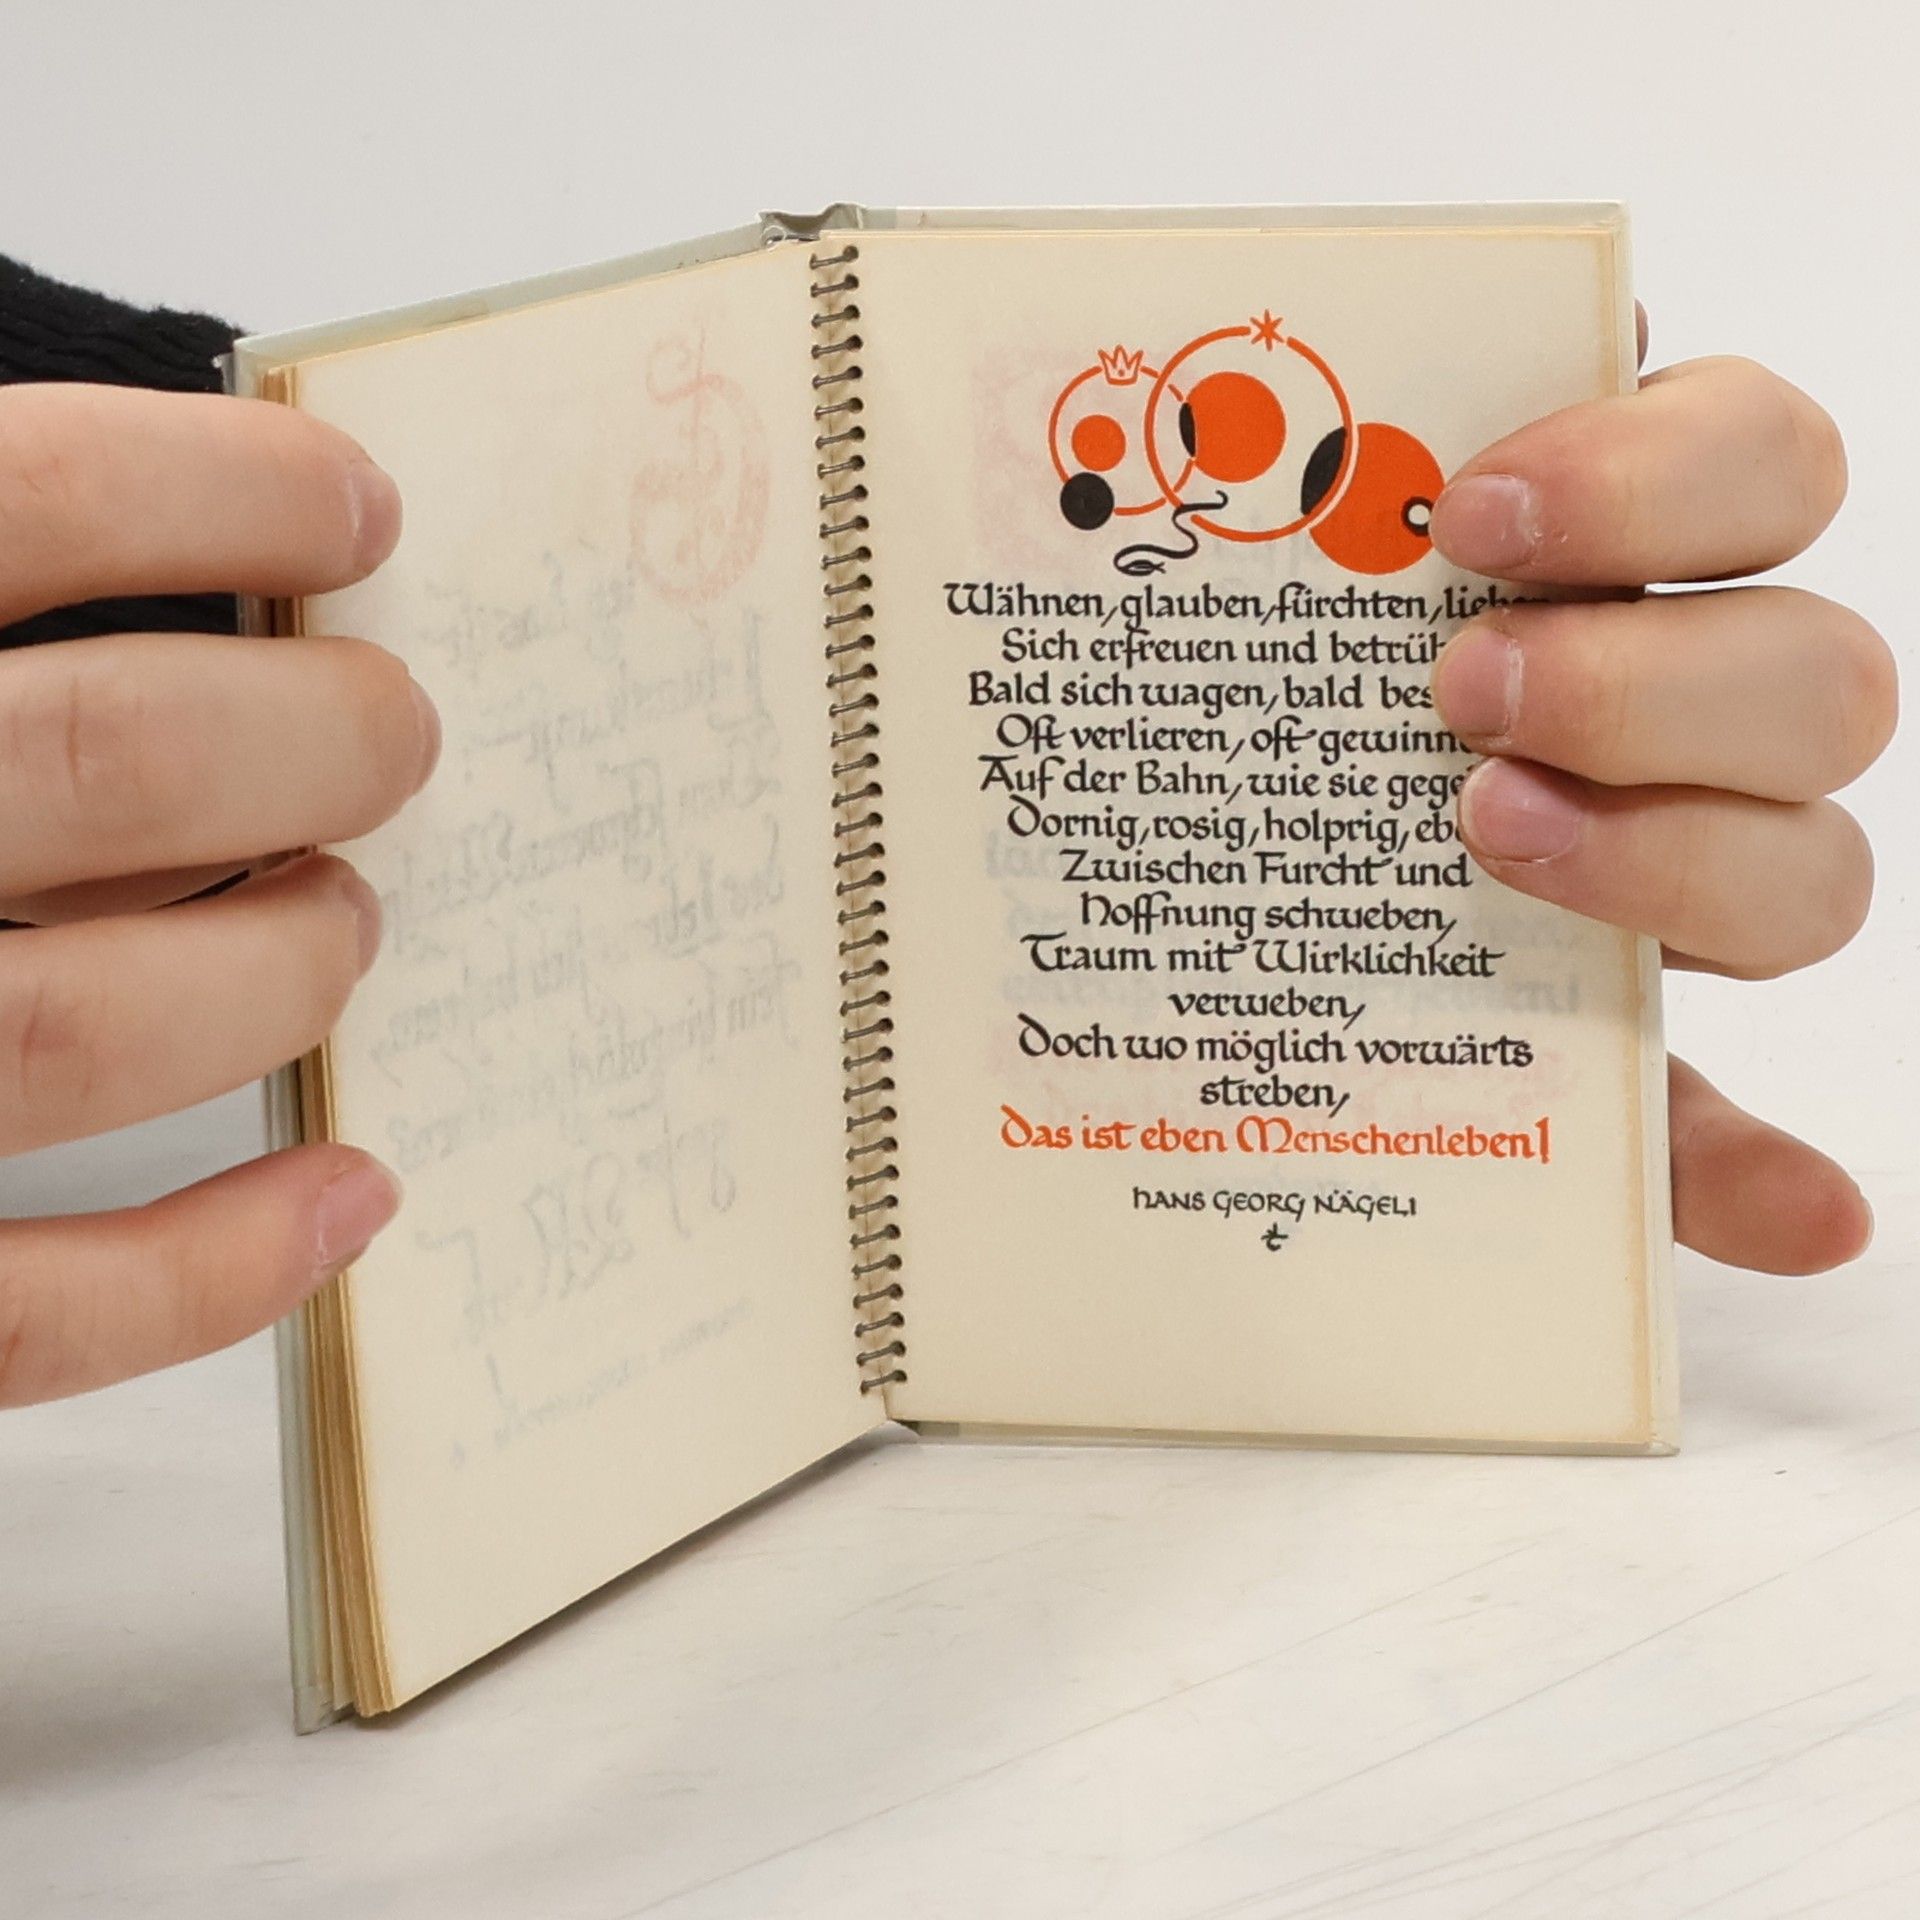 Wähnen, glauben, fürchten, lieben
Sich erfreuen und
Bald sich wagen, bald
Oft verlieren, oft
Auf der Bahn, wie sie
Dornig, rosig, holprig,
Zwischen Furcht und
Hoffnung schweben,
Traum mit Wirklichkeit
verweben,
Doch wo möglich vorwärts
streben,
Das ist eben Menschenleben!
HANS GEORG NÄGELI